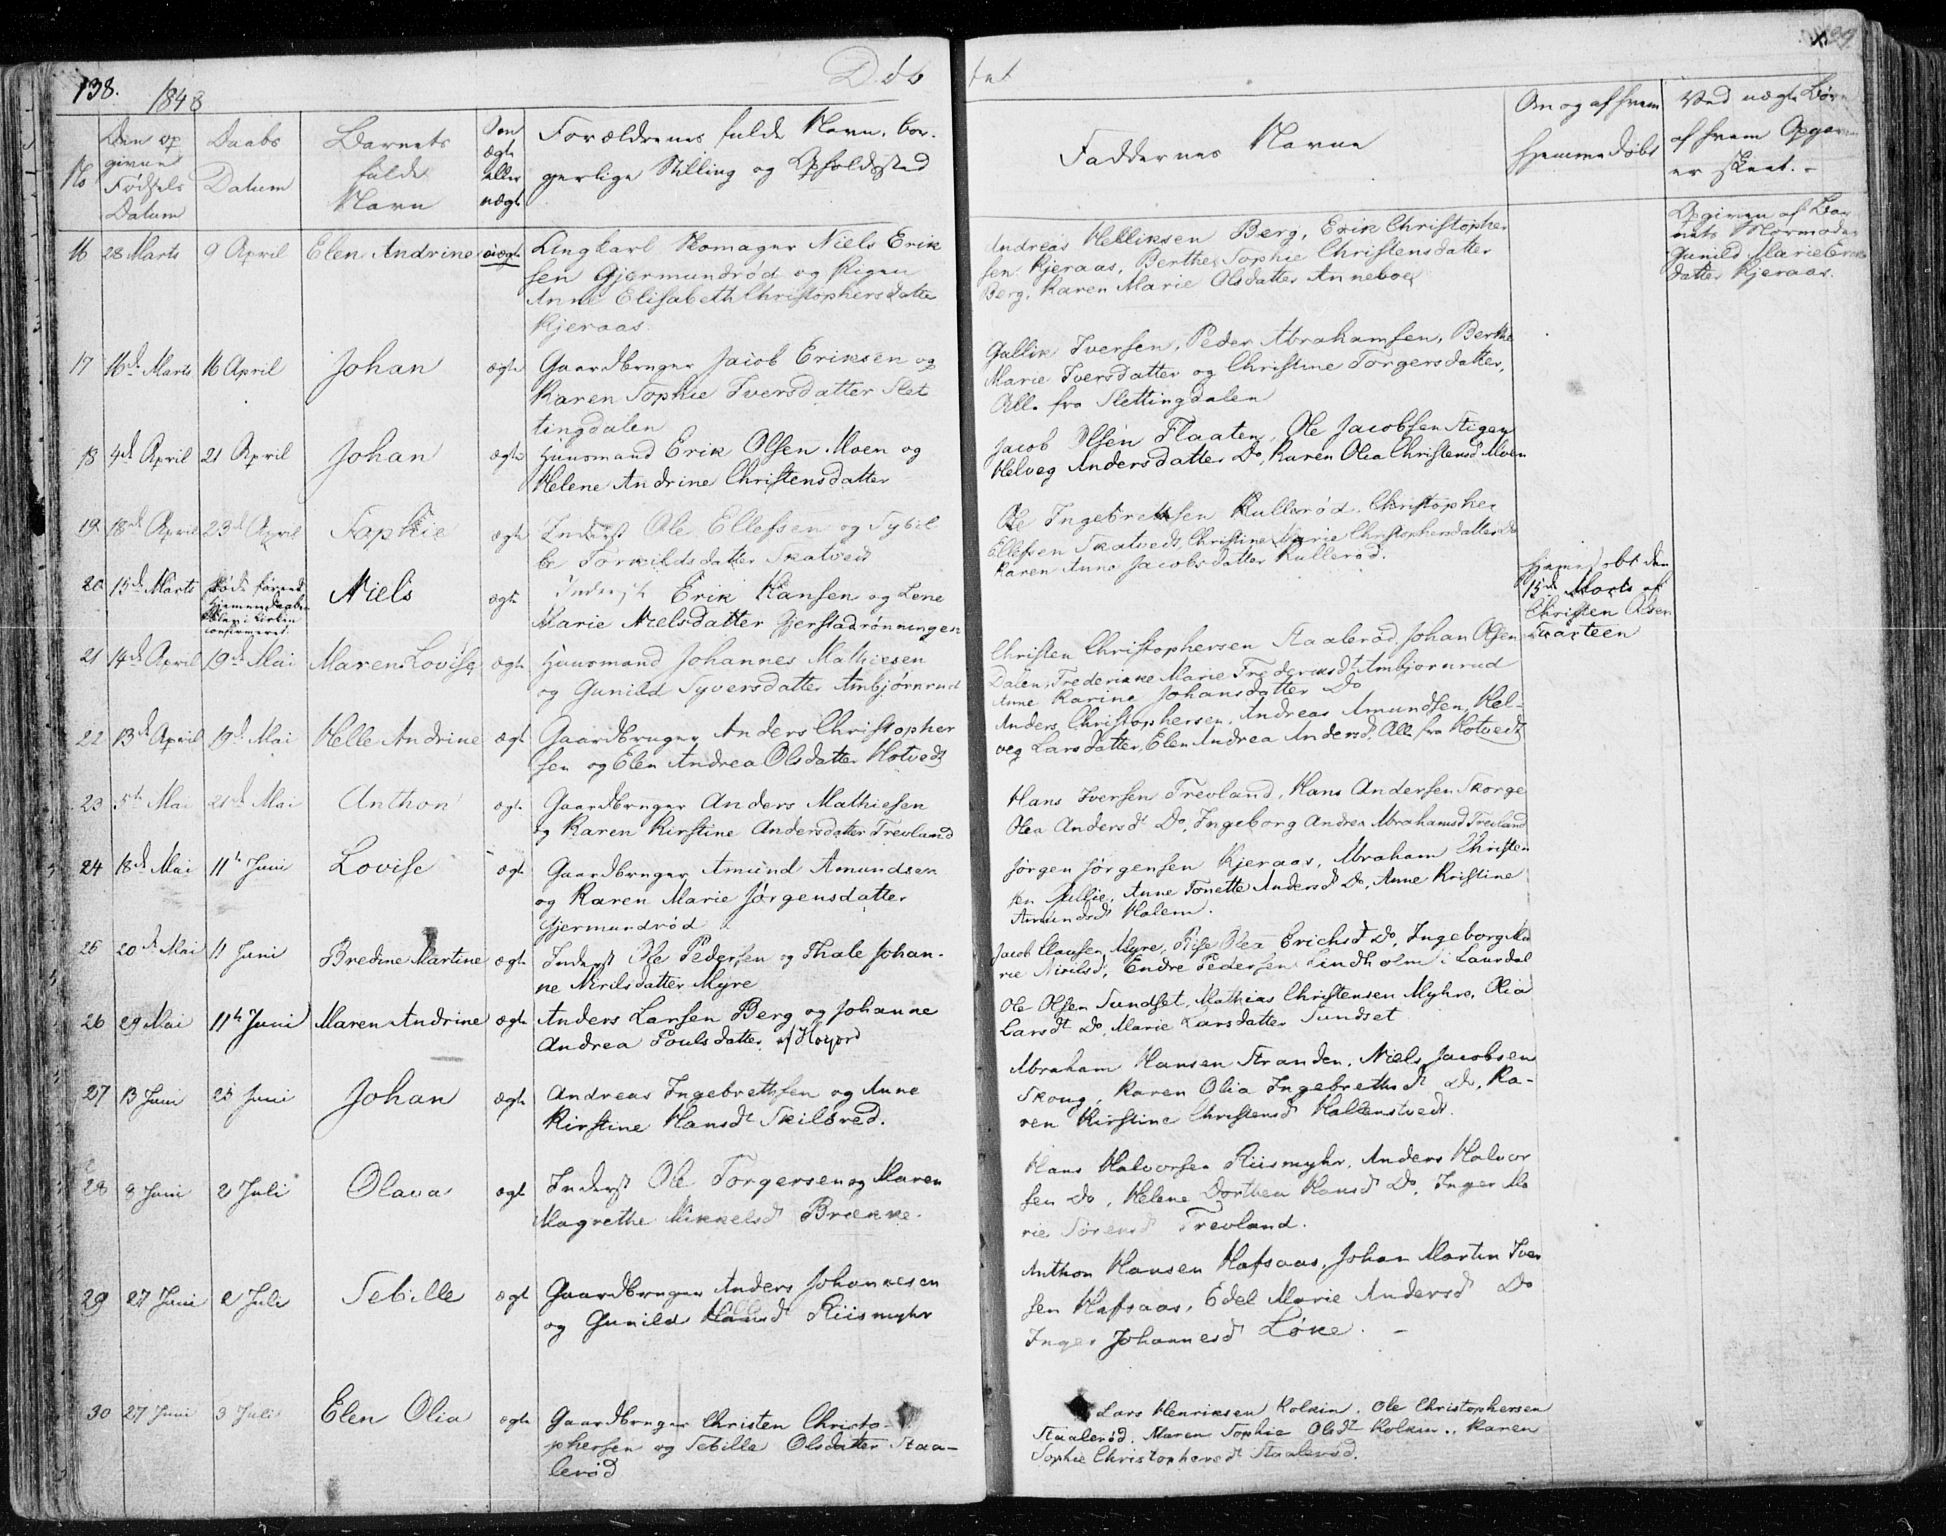 138.
1848
Døb
tet
139
No
Den op
givne
Fødsels
Datum
Daabs
Datum
Barnets
fulde
Navn
Om
ægte
eller
uægte
Forældrenes fulde Navn, bor-
gerlige Stilling og Opholdssted
Faddernes Navne
Om og af hvem
hjemmedøbt
Ved uægte Børn
af hvem Opgaven
er skeet.
16 28 Marts 9 April Elen Andrine uægte
Ungkarl Niels Erik
sen Gjermundrød og Pigen
Anne Elisabeth Christophersdatter
Kjeraas.
Andreas Helliksen Berg, Erik Christopher
sen Kjeraas, Berthe Sophie Christensdatter
Berg, Karen Marie Olsdatter Anneboe
Opgiven af Bar
nets Mormoder
Gunild Marie
datter Kjeraas.
17 16de Marts 16 April Johan ægte
Gaardbruger Jacob Eriksen og
Karen Sophie Iversdatter Slet
tingdalen
Gullik Iversen, Peder Abrahamsen, Berthe
Marie Iversdatter og Christine Torgersdatter,
Alle fra Slettingdalen
18 4de April 21 April Johan ægte
Huusmand Erik Olsen Moen og
Helene Andrine Christensdatter
Jacob Olsen Flaaten, Ole Jacobsen Stigen
Helveg Andersdatter Do, Karen Olea Christensd Moen
19 18de April 23de April Sophie ægte
Inderst Ole Ellefsen og Sybil
le Torkildsdatter Skatvedt
Ole Ingebretsen Kullerød, Christopher
Ellefsen Skatvedt, Christine Marie Christophersdatter Do
Karen Anne Jacobsdatter Kullerød.
20 15de Marts
Hjemmedaaben
i Kirken
confirmeret
Niels ægte
Inderst Erik Hansen og Lene
Marie Nielsdatter Gjerstadrønningen
Hjemmedøbt den
15de Marts af
Christen Olsen
21 14de April 19de Mai Maren Lovise ægte
Huusmand Johannes Mathiesen
og Gunild Syversdatter Ambjørnrud
Christen Christophersen Staalerød, Johan Olsen
Dalen, Frederikke Marie Frederiksdt Ambjørnrud
Anne Karine Johansdatter Do
22 13de April 19de Mai Helle Andrine ægt
Gaardbruger Anders Christopher
sen og Elen Andrea Olsdatter Hotvedt
Anders Christophersen, Andreas Amundsen, Hel-
veg Larsdatter, Elen Andrea Andersd. Alle fra Hotvedt
23 5te Mai 21de Mai Anthon ægte
Gaardbruger Anders Mathiesen
og Karen Kirstine Andersdatter Trevland
Hans Iversen Trevland, Hans Andersen Skorge
Olea Andersdt Do, Ingeborg Andrea Abrahamsd Trevland
24 18de Mai 11te Juni Lovise ægte
Gaardbruger Amund Amundsen
og Karen Marie Jørgensdatter
Gjermundrød
Jørgen Jørgensen Kjeraas, Abraham Christen
sen Jullie, Anne Tonette Andersdt Do, Anne Kristine
Amundsdt Holem.
25 20de Mai 11 Juni Bredine Martine ægte
Inderst Ole Pedersen og Thale Johan-
ne Nirilsdatter Myre
Jacob Clausen Myre, Olea Erichsdt Do, Ingeborg Ma
rie Nirilsd, Endre Pedersen Lindholm i Laurdal
26 29 Mai 11te Juni Maren Andrine ægte
Anders Larsen Berg og Johanne
Andrea Poulsdatter af Høyjord
Ole Olsen Sundset, Mathias Christensen Myhre, Olia
Larsdt Do, Marie Larsdatter Sundset
27 13 Juni 25 Juni Johan ægte
Andreas Ingebrethsen og Anne
Kirstine Hansdt Skilbred.
Abraham Hansen Stranden, Niels Jacobsen
Skoug, Karen Olia Ingebrethsdt Do, Ka-
ren Kirstine Christensd Hallenstvedt.
28 8 Juni 2 Juli Olava ægte
Inderst Ole Torgersen og Maren
Magrethe Mikkelsd Brække.
Hans Halvorsen Riismyhr, Anders Halvor
sen Do, Helene Dorthea Hansdt Do, Inger Ma
rie Sørensdt Trevland.
29 27 Juni 2 Juli Sebille ægt
Gaardbruger Anders Johannesen
og Gunild Hansdt Riismyhr
Anthon Hansen Hafsaas, Johan Martin Iver
sen Hafsaas, Edel Marie Andersd Do
Inger Johannesd Løke. –
30 27 Juni 3 Juli Elen Olia ægte
Gaardbruger Christen Christo-
phersen og Sebille Olsdatter Staa-
lerød
Lars Henriksen Kolkin, Ole Christophersen
Staalerød, Maren Sophie Olsdt Kolkin, Karen
Sophie Christophersdt Staalerød.